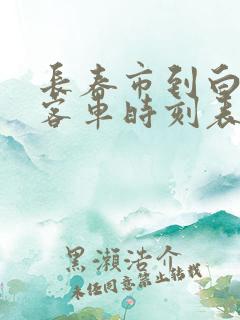 長春市到白
客車時刻表
黑瀨浩介
未经同意禁止转载